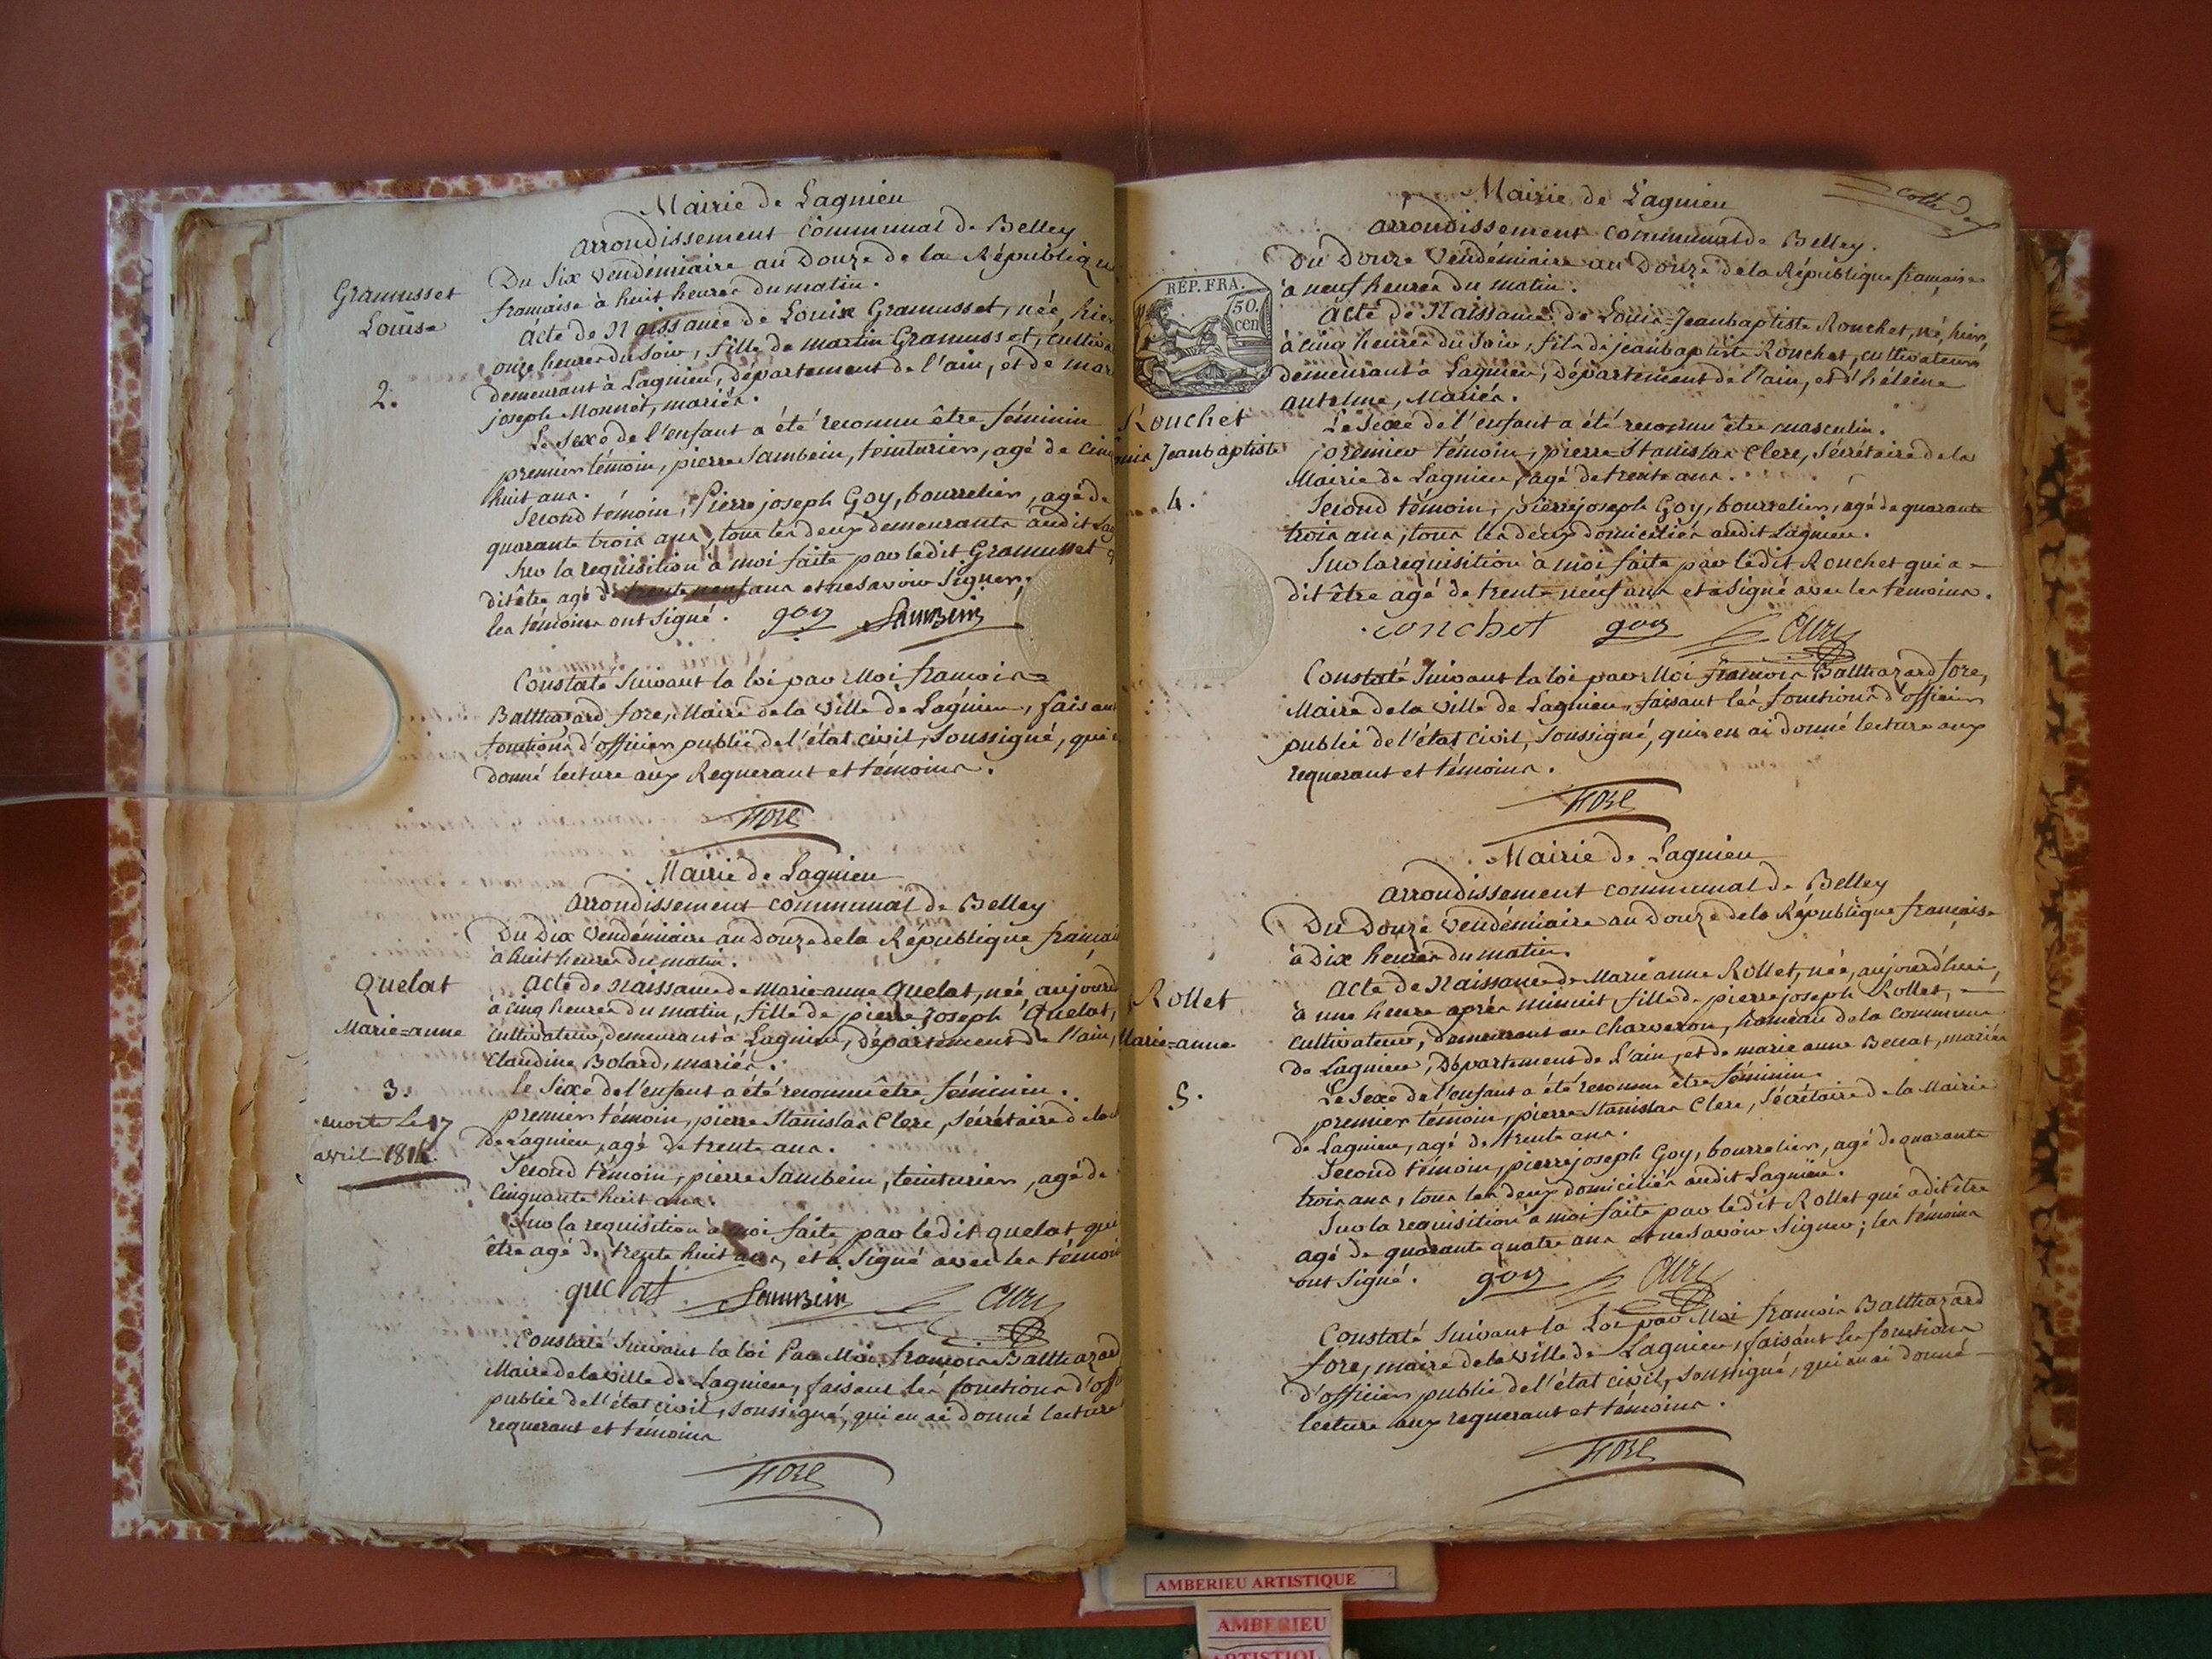 Mairie de Lagnieu
arrondissement communal de Belley
Du Six Vendémiaire an Douze de la Républiqu
française à huit heures du matin.
Gramusset
Louise
2.
Acte de Naissance de Louise Gramusset, née, hier
onze heures du soir, fille de martin Gramusset, cultiva
demeurant à Lagnieu, département de l'ain, et de mar
joseph Monnet, mariés.
Le Sexe de l'enfant a été reconnu être féminin
premier témoin, pierre Sambein, teinturier, agé de cin
huit ans.
Second témoin, Pierre joseph Goy, bourrelier, agé de
quarante trois ans, tous les deux demeurants audit Lag
Sur la requisition à moi faite par ledit Gramusset q
dit être agé de trente neuf ans et ne savoir signer;
les témoins ont signé. goy Sambein
Constaté Suivant la loi par Moi françois=
Balthazard fore, Maire de la Ville de Lagnieu, faisan
fonctions d'officier public de l'état civil, Soussigné, qui
donné lecture aux Requerant et témoins.
Fore
Mairie de Lagnieu
arrondissement communal de Belley
Du Dix Vendémiaire an Douze de la République françai
à huit heures du matin.
Quelat
Marie=anne
3.
morte le 17
avril
Acte de Naissance de Marie=anne Quelat, née, aujourd
à cinq heures du matin, fille de pierre Joseph Quelat,
cultivateur, demeurant à Lagnieu, département de l'ain,
Claudine Bolard, mariés.
le Sexe de l'enfant a été reconnu être féminin.
premier témoin, pierre Stanislas Clerc, Sécrétaire de la
de Lagnieu, agé de trente ans.
Second témoin, pierre Sambein, teinturier, agé de
Cinquante huit ans.
Sur la requisition à moi faite par ledit quelat, qui
être agé de trente huit ans, et a Signé avec les témoin
quelat Sambein Clerc
Constaté Suivant la loi Par Moi, françois Balthazard
Maire de la Ville de Lagnieu, faisant les fonctions d'off
public de l'état civil, Soussigné, qui en ai donné lecture
requerant et témoins
Fore
Mairie de Lagnieu
arrondissement communal de Belley.
Du Douze Vendémiaire an Douze de la République française
à neuf heures du matin.
RÉP. FRA.
50.
cen
Ronchet
Jeanbaptiste
4.
Acte de Naissance de Louis=Jeanbaptiste Ronchet, né, hier,
à cinq heures du soir, fils de jeanbaptiste Ronchet, cultivateur,
demeurant à Lagnieu, département de l'ain, et d'héleine
anthelme, Mariés.
Le Sexe de l'enfant a été reconnu être masculin.
premier témoin, pierre Stanislas Clerc, Sécrétaire de la
Mairie de Lagnieu, agé de trente ans.
Second témoin, pierre joseph Goy, bourrelier, agé de quarante
trois ans, tous les deux domiciliés audit Lagnieu.
Sur la requisition à moi faite par ledit Ronchet qui a
dit être agé de trente=neuf ans et a signé avec les témoins.
ronchet goy Clerc
Constaté Suivant la loi par Moi françois Balthazard fore,
Maire de la Ville de Lagnieu, faisant les fonctions d'officier
public de l'état civil, Soussigné, qui en ai donné lecture aux
requerant et témoins.
Fore
Mairie de Lagnieu
arrondissement communal de Belley
Du Douze Vendémiaire an Douze de la République française
à Dix heures du matin.
Rollet
Marie=anne
5.
Acte de Naissance de Marie anne Rollet, née, aujourd'hui,
à une heure après minuit, fille de pierre joseph Rollet,
cultivateur, demeurant au Charveron, hameau de la Commune
de Lagnieu, Département de l'ain, et de marie anne Benat, mariés
Le Sexe de l'enfant a été reconnu être féminin.
premier témoin, pierre Stanislas Clerc, Sécrétaire de la Mairie
de Lagnieu, agé de trente ans.
Second témoin, pierre joseph Goy, bourrelier, agé de quarante
trois ans, tous les deux domiciliés audit Lagnieu.
Sur la requisition à moi faite par ledit Rollet qui a dit être
agé de quarante quatre ans et ne savoir signer; les témoins
ont signé. goy Clerc
Constaté Suivant la Loi par Moi françois Balthazard
fore, maire de la Ville de Lagnieu, faisant les fonctions
d'officier public de l'état civil, Soussigné, qui en ai donné
lecture aux requerant et témoins.
Fore
AMBERIEU ARTISTIQUE
AMBERIEU